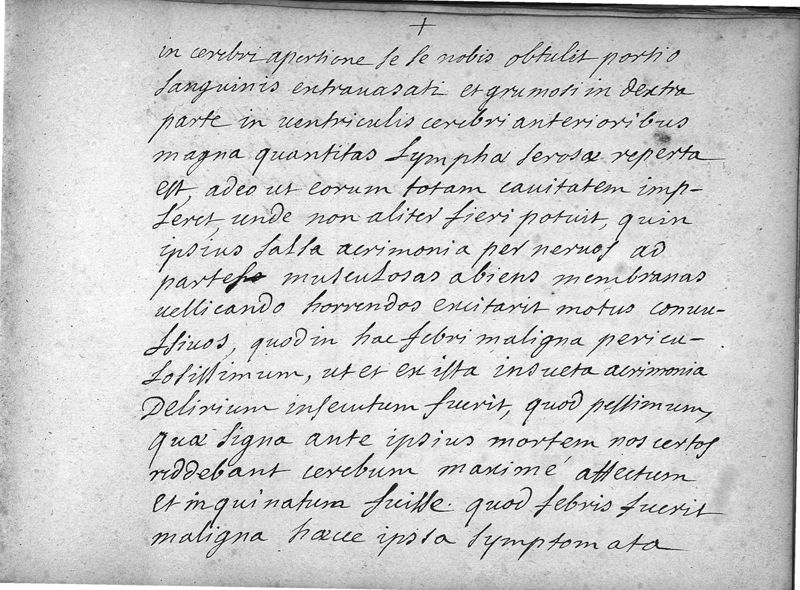 +
in cerebri apertione se se nobis obtulit portio
sanguinis extravasati et grumosi in dextra
parte in ventriculis cerebri anterioribus
magna quantitas symphæ serosæ reperta
est, adeo ut eorum totam cavitatem imp-
leret, unde non aliter fieri potuit, quin
ipsius salsa acrimonia per nervos ad
partes musculosas abiens membranas
vellicando horrendos excitarit motus convu-
lsivos, quod in hac febri maligna pericu-
losissimum, ut et ex ista insueta acrimonia
Delirium insecutum fuerit, quod pessimum,
quæ signa ante ipsius mortem nos certos
reddebant cerebum maximé affectum
et inquinatum fuisse. quod febris fuerit
maligna hæcce ipsa symptomata